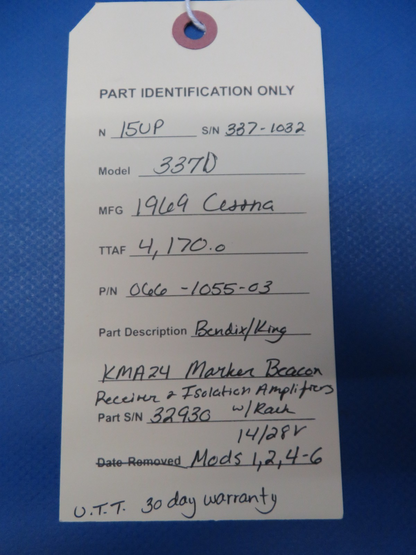 PART IDENTIFICATION ONLY
N 15UP S/N 337-1032
Model 337D
MFG 1969 Cessna
TTAF 4,170.0
P/N 066-1055-03
Part Description Bendix/King
KMA24 Marker Beacon
Receiver & Isolation Amplifiers
Part S/N 32930 w/Rack
14/28V
Date Removed Mods 1,2,4-6
U.T.T. 30 day warranty